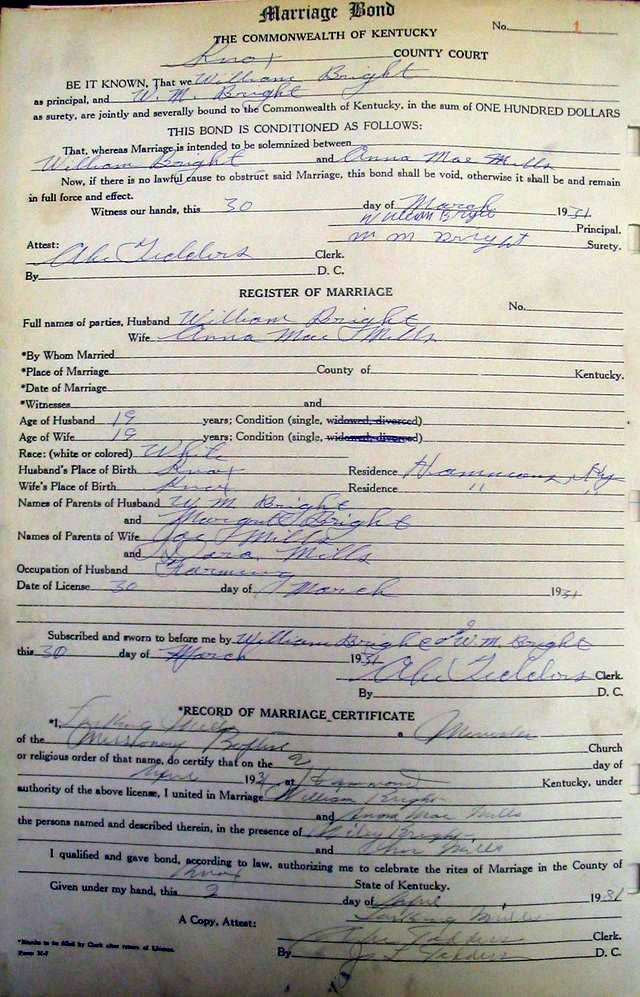 Marriage Bond
No. 1
THE COMMONWEALTH OF KENTUCKY
Knox COUNTY COURT
BE IT KNOWN, That we William Bright
as principal, and W. M. Bright
as surety, are jointly and severally bound to the Commonwealth of Kentucky, in the sum of ONE HUNDRED DOLLARS
THIS BOND IS CONDITIONED AS FOLLOWS:
That, whereas Marriage is intended to be solemnized between
William Bright and Anna Mae Mills
Now, if there is no lawful cause to obstruct said Marriage, this bond shall be void, otherwise it shall be and remain
in full force and effect.
Witness our hands, this 30 day of March 1931
William Bright Principal.
Attest: Bright Surety.
Clerk.
By D. C.
REGISTER OF MARRIAGE
No.
Full names of parties, Husband William Bright
Wife Anna Mae Mills
*By Whom Married
*Place of Marriage County of Kentucky.
*Date of Marriage
*Witnesses and
Age of Husband 19 years; Condition (single, widowed, divorced)
Age of Wife 19 years; Condition (single, widowed, divorced)
Race: (white or colored) White
Husband's Place of Birth Knox Residence Ky
Wife's Place of Birth Knox Residence " "
Names of Parents of Husband W M Bright
and Bright
Names of Parents of Wife Joe Mills
and Mills
Occupation of Husband Farming
Date of License 30 day of March 1931
Subscribed and sworn to before me by William Bright & W. M. Bright
this 30 day of March 1931
Clerk.
By D. C.
*RECORD OF MARRIAGE CERTIFICATE
*I, a Minister
of the Missionary Baptist Church
or religious order of that name, do certify that on the 2 day of
April 1931 at Kentucky, under
authority of the above license, I united in Marriage William Bright
and Anna Mae Mills
the persons named and described therein, in the presence of Bright
and Mills
I qualified and gave bond, according to law, authorizing me to celebrate the rites of Marriage in the County of
Knox State of Kentucky.
Given under my hand, this 2 day of April 1931
Mills
A Copy, Attest: Clerk.
By D. C.
*Blanks to be filled by Clerk after return of License.